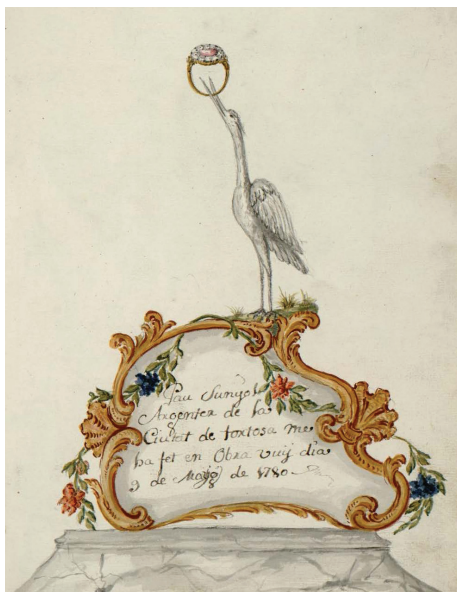 Pau Sunyol
Argenter de la
Ciutat de tortosa me
ha fet en Obra vuÿ dia
9 de Mayg de 1780